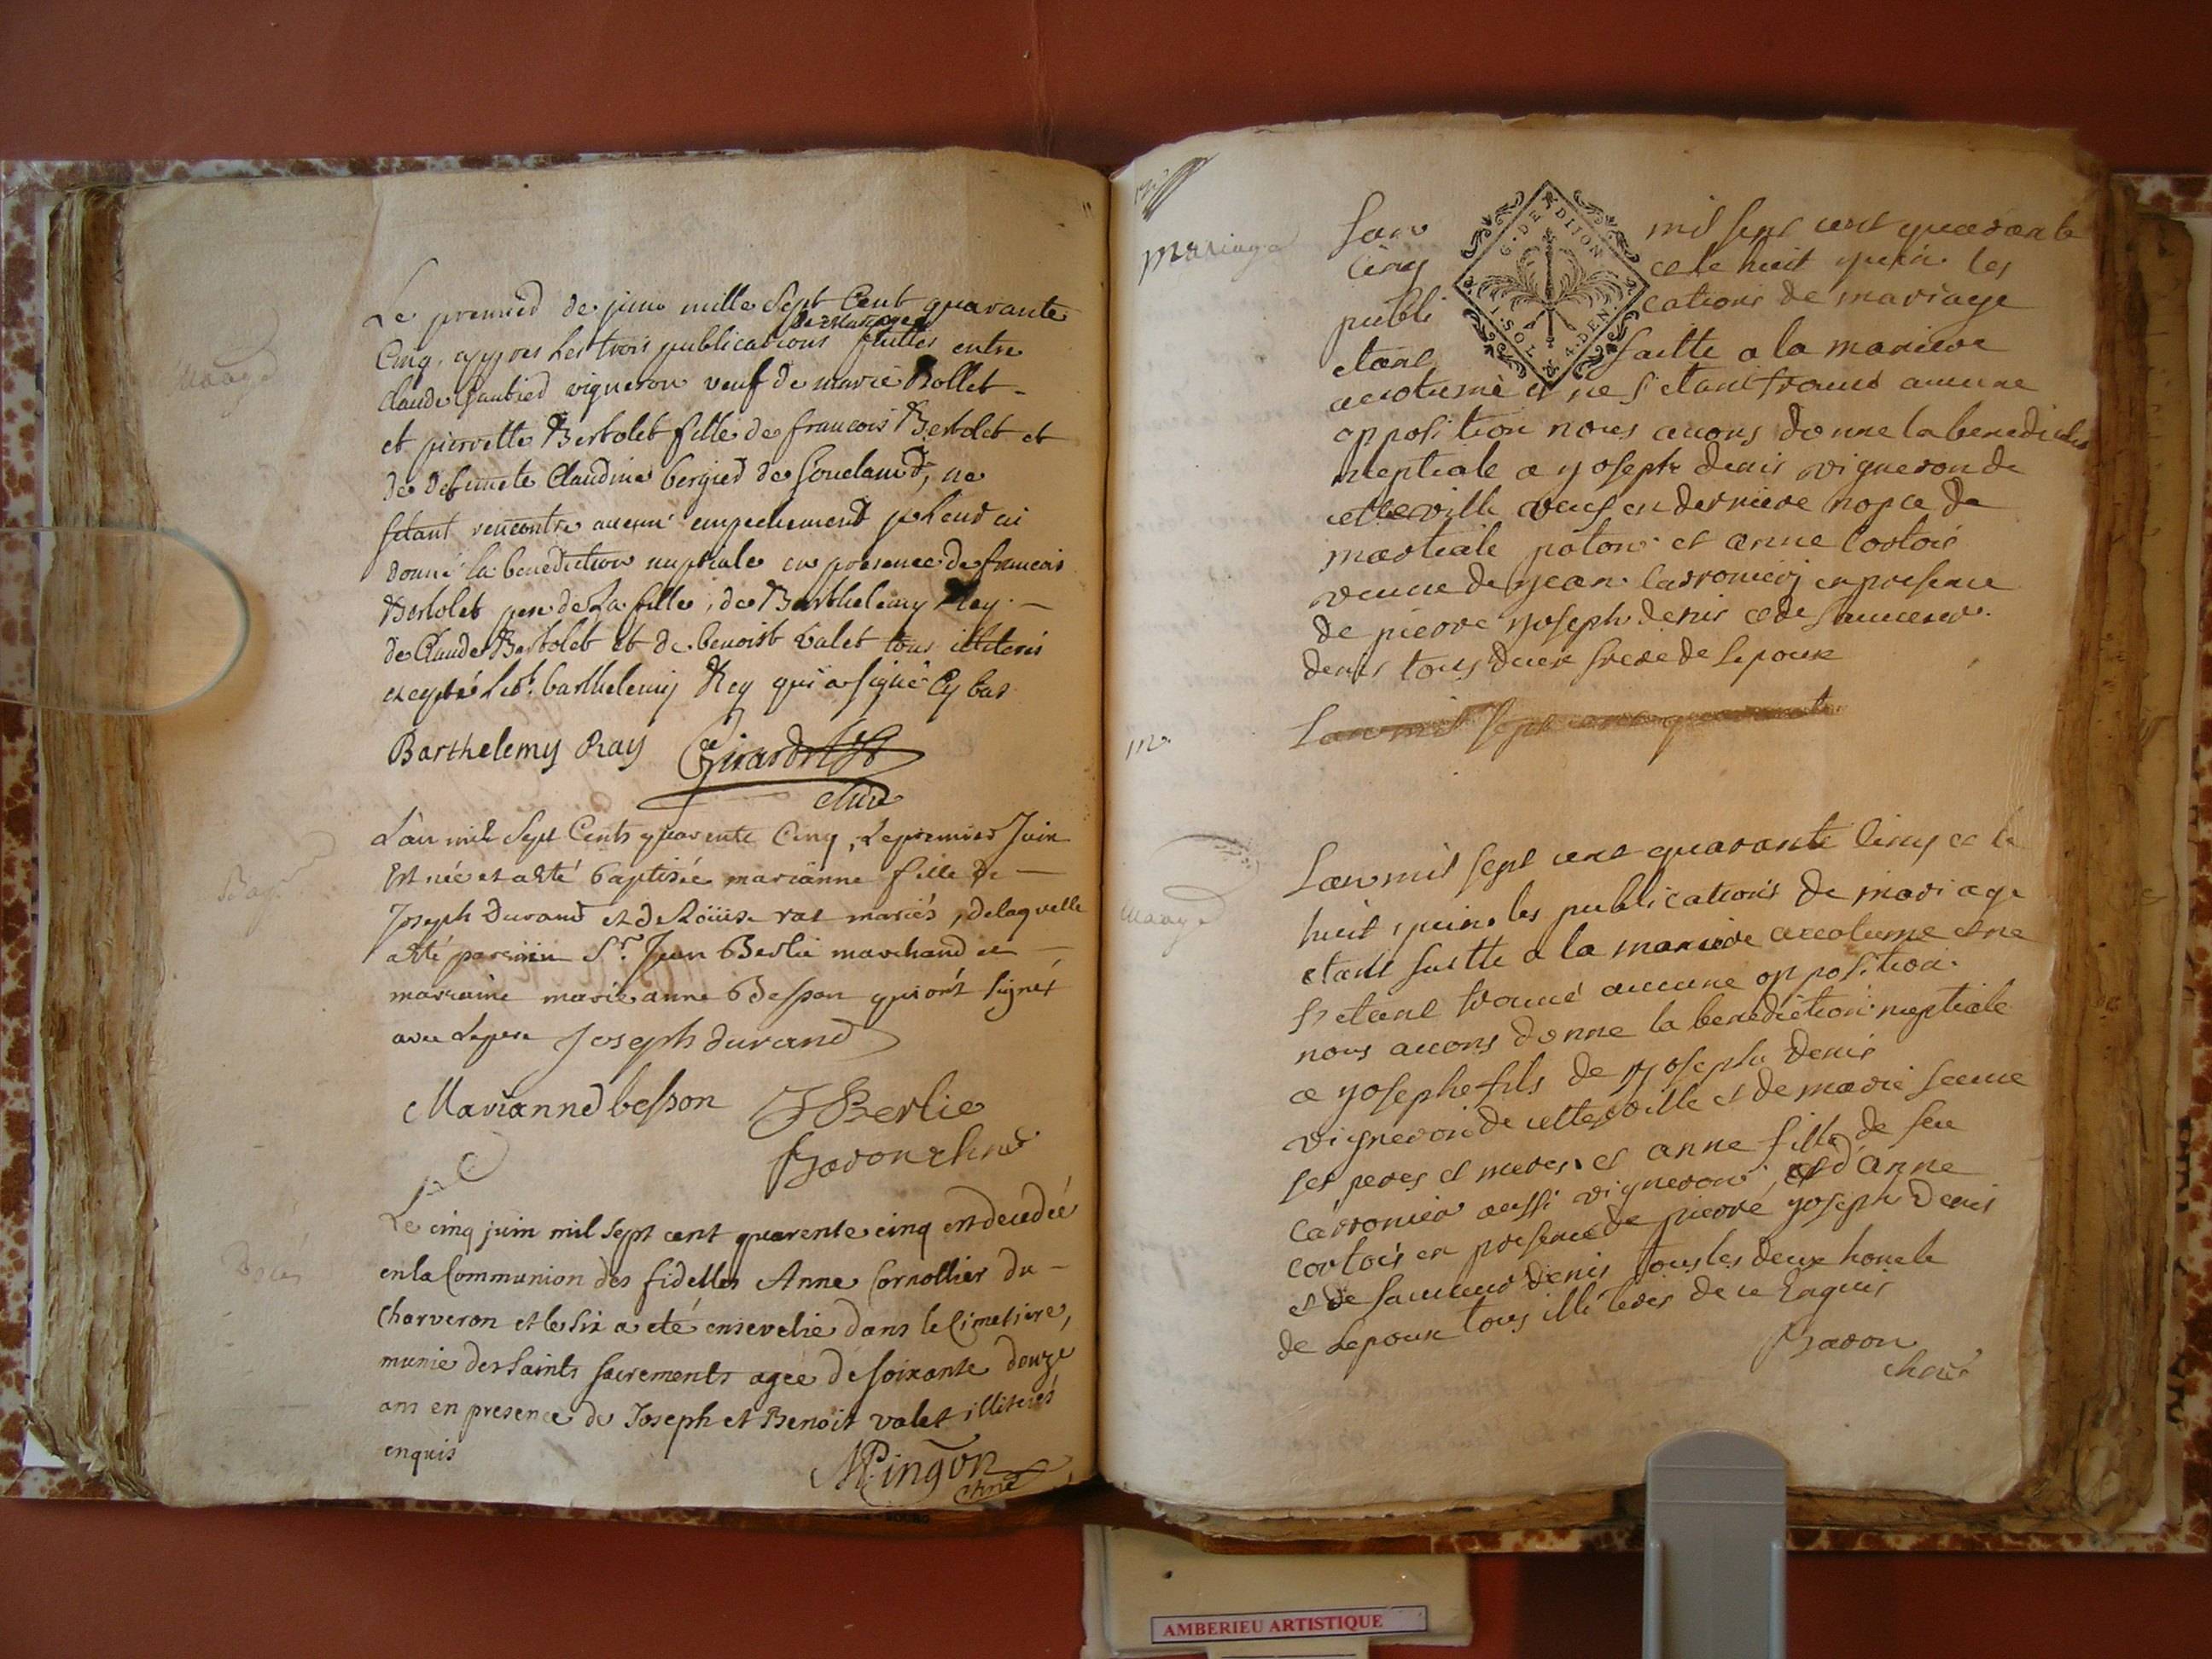 Mariage
Le premied de juin mille Sept Cent quarante
de mariage
Cinq, appres les trois publications faittes entre
Claude Gaubied vigneron veuf de marie Bollet
et pierrette Bertolet fille de francois Bertolet et
de defuncte Claudine bergied de Soueland, ne
setant rencontre aucun empechement je leur ai
donné la benediction nuptiale en presence de francois
Bertolet pere de La fille, de Barthelemy Rey
de Claude Bertolet et de benoist valet tous illiterés
excepté led.t barthelemy Rey qui a signé Cy bas
Barthelemy Ray Girardet
Bap
L'an mil Sept Cents quarente Cinq, Le premier Juin
Est née et a Eté baptisée marianne fille de
Joseph Durand et de Loüise rat mariés, de laquelle
a Eté parain Sr. Jean Berlie marchand et
marraine marie anne besson qui ont signés
avec Le pere Joseph durand
Marianne besson JBerlie
Baron
Le cinq juin mil sept cent quarente cinq est decedeé
en la Communion des fidelles Anne Cornollier du
Charveron et le six a eté ensevelie dans le Cimetiere,
munie des Saints sacrements ageé de soixante douze
ans en presence de Joseph et Benoit valet illiterés
enquis
MPingon
mariage
G. DE DIJON
1. SOL. 4. DEN.
Lan mil sept cent quarante
cinq et le huit juin les
publications de mariage
etant faitte a la maniere
accotumé et ne s etant trouvé aucune
opposition nous avons donne la benediction
nuptiale a yoseph denis vigneron de
cette ville veuf en derniere nopce de
martiale poton et anne Cortois
veuve de jean carronier en presence
de pierre yoseph denis et de
denis tous deux frere de lepoux
m.
Lan mil sept cent quarante
Mariage
Lan mil sept cent quarante cinq et le
huit juin les publications de mariage
etant faitte a la maniere accotume et ne
s etant trouvé aucune opposition
nous avons donne la benediction nuptiale
a yosephe fils de yoseph denis
vigneron de cette ville et de marie
ses peres et meres et anne fille de feu
carronier aussi vigneron et d'anne
cortois en presence de pierre yoseph denis
et de denis tous les deux honcle
de Lepoux tous illiteres de ce Enquis
Baron
AMBERIEU ARTISTIQUE